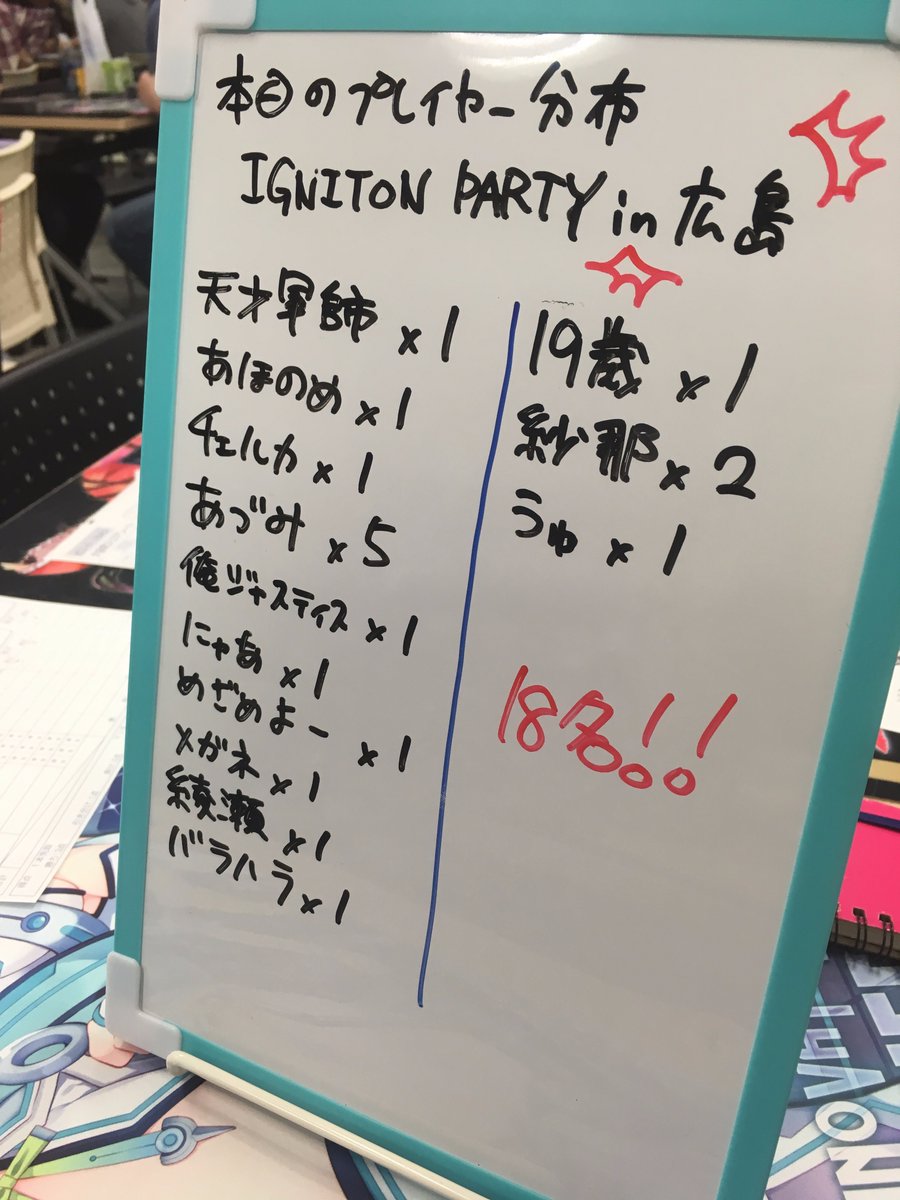 本日のプレイヤー分布
IGNITON PARTY in 広島
天才軍師 ×1
あほのめ ×1
チェルカ ×1
あづみ ×5
俺ジャスティス ×1
にゃあ ×1
めざめよー ×1
メガネ ×1
綾瀬 ×1
バラハラ ×1
19歳 ×1
紗那 ×2
うゅ ×1
18名!!